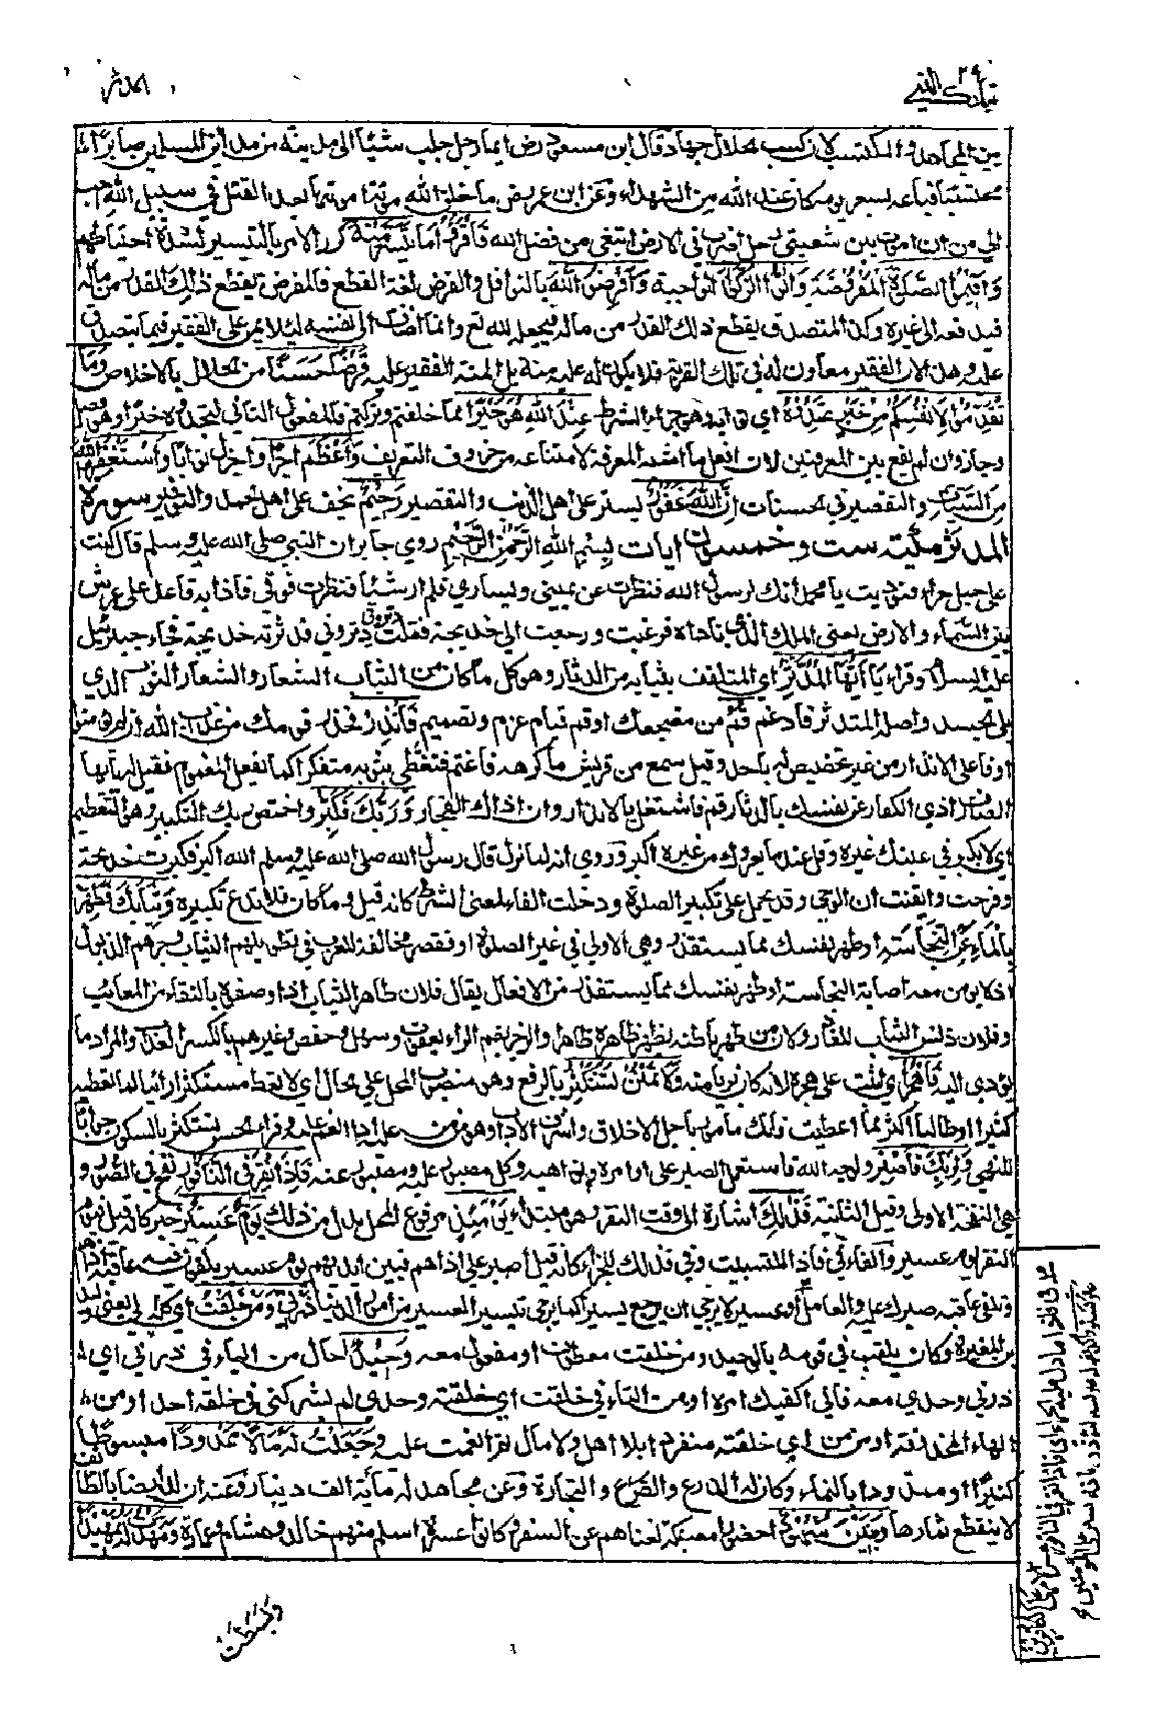 تبارك الذي ٢٩
المدثر
بين المجاهد والمكتسب لان كسب الحلال جهاد قال ابن مسعود رض ايما رجل جلب شيئا الى مدينة من مدائن المسلمين صابرا
محتسبا فباعه بسعر يومه كان عند الله من الشهداء وعن ابن عمر رض ما خلق الله موتة اموتها بعد القتل في سبيل الله احب
الي من ان اموت بين شعبتي رحل اضرب في الارض ابتغي من فضل الله فَاقْرَؤُا مَا تَيَسَّرَ مِنْهُ كرر الامر بالتيسير لشدة احتياطهم
وَاَقِيمُوا الصَّلٰوةَ المفروضة وَاٰتُوا الزَّكٰوةَ الواجبة وَاَقْرِضُوا اللّٰهَ بالنوافل والقرض لغة القطع فالمقرض يقطع ذلك القدر من ماله
فيدفعه الى غيره وكذا المتصدق يقطع ذلك القدر من ماله فيجعله لله تع وانما اضاف الى نفسه لئلا يمن على الفقير فيما يتصدق
عليه وهذا لان الفقير معاون له في تلك القربة فلا يكون له عليه منة بل المنة للفقير عليه قَرْضًا حَسَنًا من الحلال بالاخلاص وَمَا
تُقَدِّمُوا لِاَنْفُسِكُمْ مِنْ خَيْرٍ تَجِدُوهُ اي ثوابه وهو جزاء الشرط عِنْدَ اللّٰهِ هُوَ خَيْرًا مما خلفتم وتركتم فالمفعول الثاني لتجدوه خيرا وهو فصل
وجاز وان لم يقع بين المعرفتين لان افعل من اشبه المعرفة لامتناعه من حروف التعريف وَاَعْظَمَ اَجْرًا واجزل ثوابا وَاسْتَغْفِرُوا اللّٰهَ
من السيئات والتقصير في الحسنات اِنَّ اللّٰهَ غَفُورٌ يستر على اهل الذنب والتقصير رَحِيمٌ يخفف على اهل الجهد والتوفير سورة
المدثر مكية ست وخمسون ايات بِسْمِ اللّٰهِ الرَّحْمٰنِ الرَّحِيمِ روى جابر ان النبي صلى الله عليه وسلم قال كنت
على جبل حراء فنوديت يا محمد انك لرسول الله فنظرت عن يميني ويساري فلم ار شيئا فنظرت فوقي فاذا به قاعد على عرش
بين السماء والارض يعني الملك الذي ناداه فرعبت ورجعت الى خديجة فقلت دثروني دثروني فدثرته خديجة فجاء جبرئيل
عليه السلام وقراء يَا اَيُّهَا الْمُدَّثِّرُ اي المتلفف بثيابه من الدثار وهو كل ما كان من الثياب الشعار والشعار الثوب الذي
يلي الجسد واصله المتدثر فادغم قُمْ من مضجعك او قم قيام عزم وتصميم فَاَنْذِرْ فحذر قومك من عذاب الله ان لم يؤمنوا
او فافعل الانذار من غير تخصيص له باحد وقيل سمع من قريش ما كرهه فاغتم فتغطى بثوبه متفكرا كما يفعل المغموم فقيل له يا ايها
الصارف اذى الكفار عن نفسك بالدثار قم فاشتغل بالانذار وان اذاك الفجار وَرَبَّكَ فَكَبِّرْ واختص ربك بالتكبير وهو التعظيم
اي لا يكبر في عينك غيره وقل عند ما يعروك من غيره الله اكبر وروي انه لما نزل قال رسول الله صلى الله عليه وسلم الله اكبر فكبرت خديجة
وفرحت وايقنت انه الوحي وقد يحمل على تكبير الصلوة ودخلت الفاء لمعنى الشرط كانه قيل وما كان فلا تدع تكبيره وَثِيَابَكَ فَطَهِّرْ
بالماء عن النجاسة او طهر نفسك مما يستقذر وهي الاولى في غير الصلوة او فقصر مخالفة للعرب في تطويلهم الثياب وجرهم الذيول
اذ لا يؤمن معه اصابة النجاسة او طهر نفسك مما يستقذر من الافعال يقال فلان طاهر الثياب اذا وصفوه بالنقاء من المعائب
وفلان دنس الثياب للغادر ولان من طهر باطنه يطهر ظاهره ظاهرا والرجز بضم الراء يعقوب وسهل وحفص وغيرهم بالكسر العذاب والمراد ما
يؤدي اليه فَاهْجُرْ اي اثبت على هجره لانه كان بريا منه وَلَا تَمْنُنْ تَسْتَكْثِرُ بالرفع وهو منصوب المحل على الحال اي لا تعط مستكثرا رائيا لما تعطيه
كثيرا او طالبا اكثر مما اعطيت فانك مامور باجل الاخلاق واشرف الاداب وهو من من عليه اذا انعم عليه وقراء الحسن تستكثر بالسكون جوابا
للنهي وَلِرَبِّكَ فَاصْبِرْ ولوجه الله فاستعمل الصبر على اوامره ونواهيه وكل مصبور عليه ومصبور عنه فَاِذَا نُقِرَ فِي النَّاقُورِ نفخ في الصور و
هي النفخة الاولى وقيل الثانية فَذٰلِكَ اشارة الى وقت النقر وهو مبتداء يَوْمَئِذٍ مرفوع المحل بدل من ذلك يَوْمٌ عَسِيرٌ خبر كانه قيل فيوم
النقر يوم عسير والفاء في فاذا للتسبيب وفي فذلك للجزاء كانه قيل اصبر على اذاهم فبين ايديهم يوم عسير يلقون فيه عاقبة اذاهم
وتلقى عاقبة صبرك عليه والعامل
بن المغيرة وكان يلقب في قومه بالوحيد ومن خلقت معطوف او مفعول معه وَحِيدًا حال من الياء في ذرني اي
ذرني وحدي معه فاني اكفيك امره او من التاء في خلقت اي خلقته وحدي لم يشركني في خلقه احد او من
الهاء المحذوفة او من من اي خلقته منفردا بلا اهل ولا مال ثم انعمت عليه وَجَعَلْتُ لَهُ مَالًا مَمْدُودًا مبسوطا
كثيرا او ممدودا بالنماء وكان له الزرع والضرع والتجارة وعن مجاهد له مائة الف دينار وعنه ان له ارضا بالطائف
لا ينقطع ثمارها وَبَنِينَ شُهُودًا حضورا معه بمكة لغناهم عن السفر وكانوا عشرة اسلم منهم خالد وهشام وعمارة وَمَهَّدْتُ لَهُ تَمْهِيدًا
وبسطت